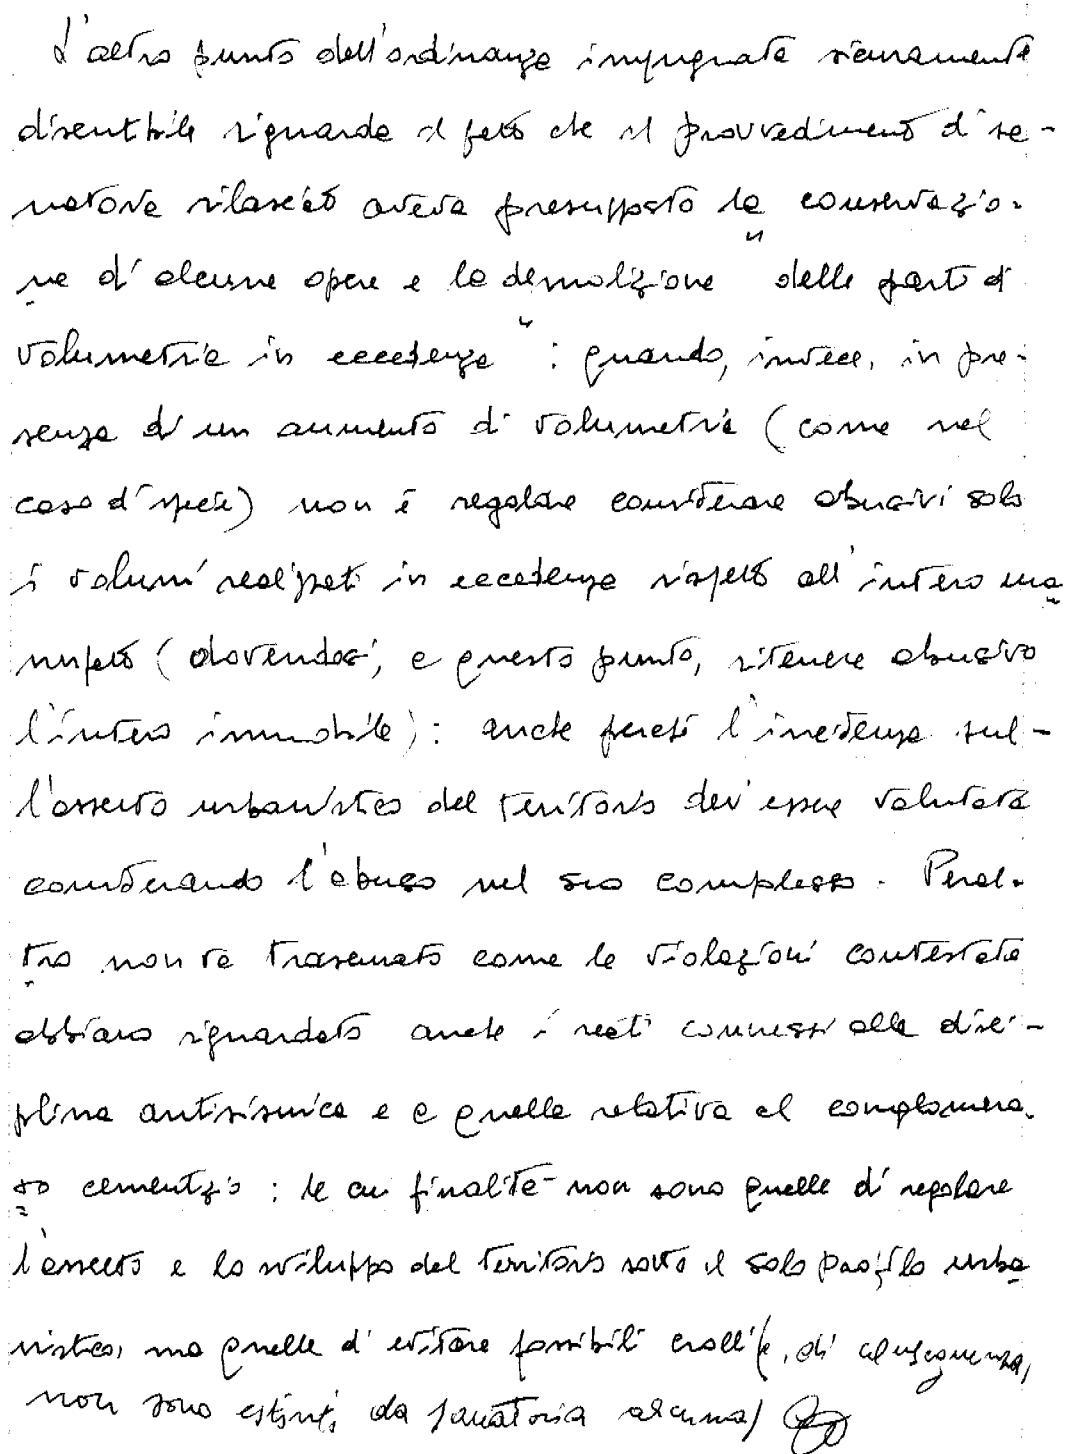 L'altro punto dell'ordinanza impugnata sicuramente
discutibile riguarda il fatto che il provvedimento di sa-
natoria rilasciato aveva presupposto la conservazio-
ne di alcune opere e la demolizione "delle parti di
volumetria in eccedenza": quando, invece, in pre-
senza di un aumento di volumetria (come nel
caso di specie) non è regolare considerare abusivi solo
i volumi realizzati in eccedenza rispetto all'intero ma
nufatto (dovendosi, a questo punto, ritenere abusivo
l'intero immobile): anche perché l'incidenza sul-
l'assetto urbanistico del territorio dev'essere valutata
considerando l'abuso nel suo complesso. Peral-
tro non va trascurato come le violazioni contestate
abbiano riguardato anche i reati connessi alla disci-
plina antisismica e a quella relativa al conglomera-
to cementizio: le cui finalità non sono quelle di regolare
l'assetto e lo sviluppo del territorio sotto il solo profilo urba
nistico, ma quelle di evitare possibili crolli (e, di conseguenza,
non sono estinti da sanatoria alcuna)